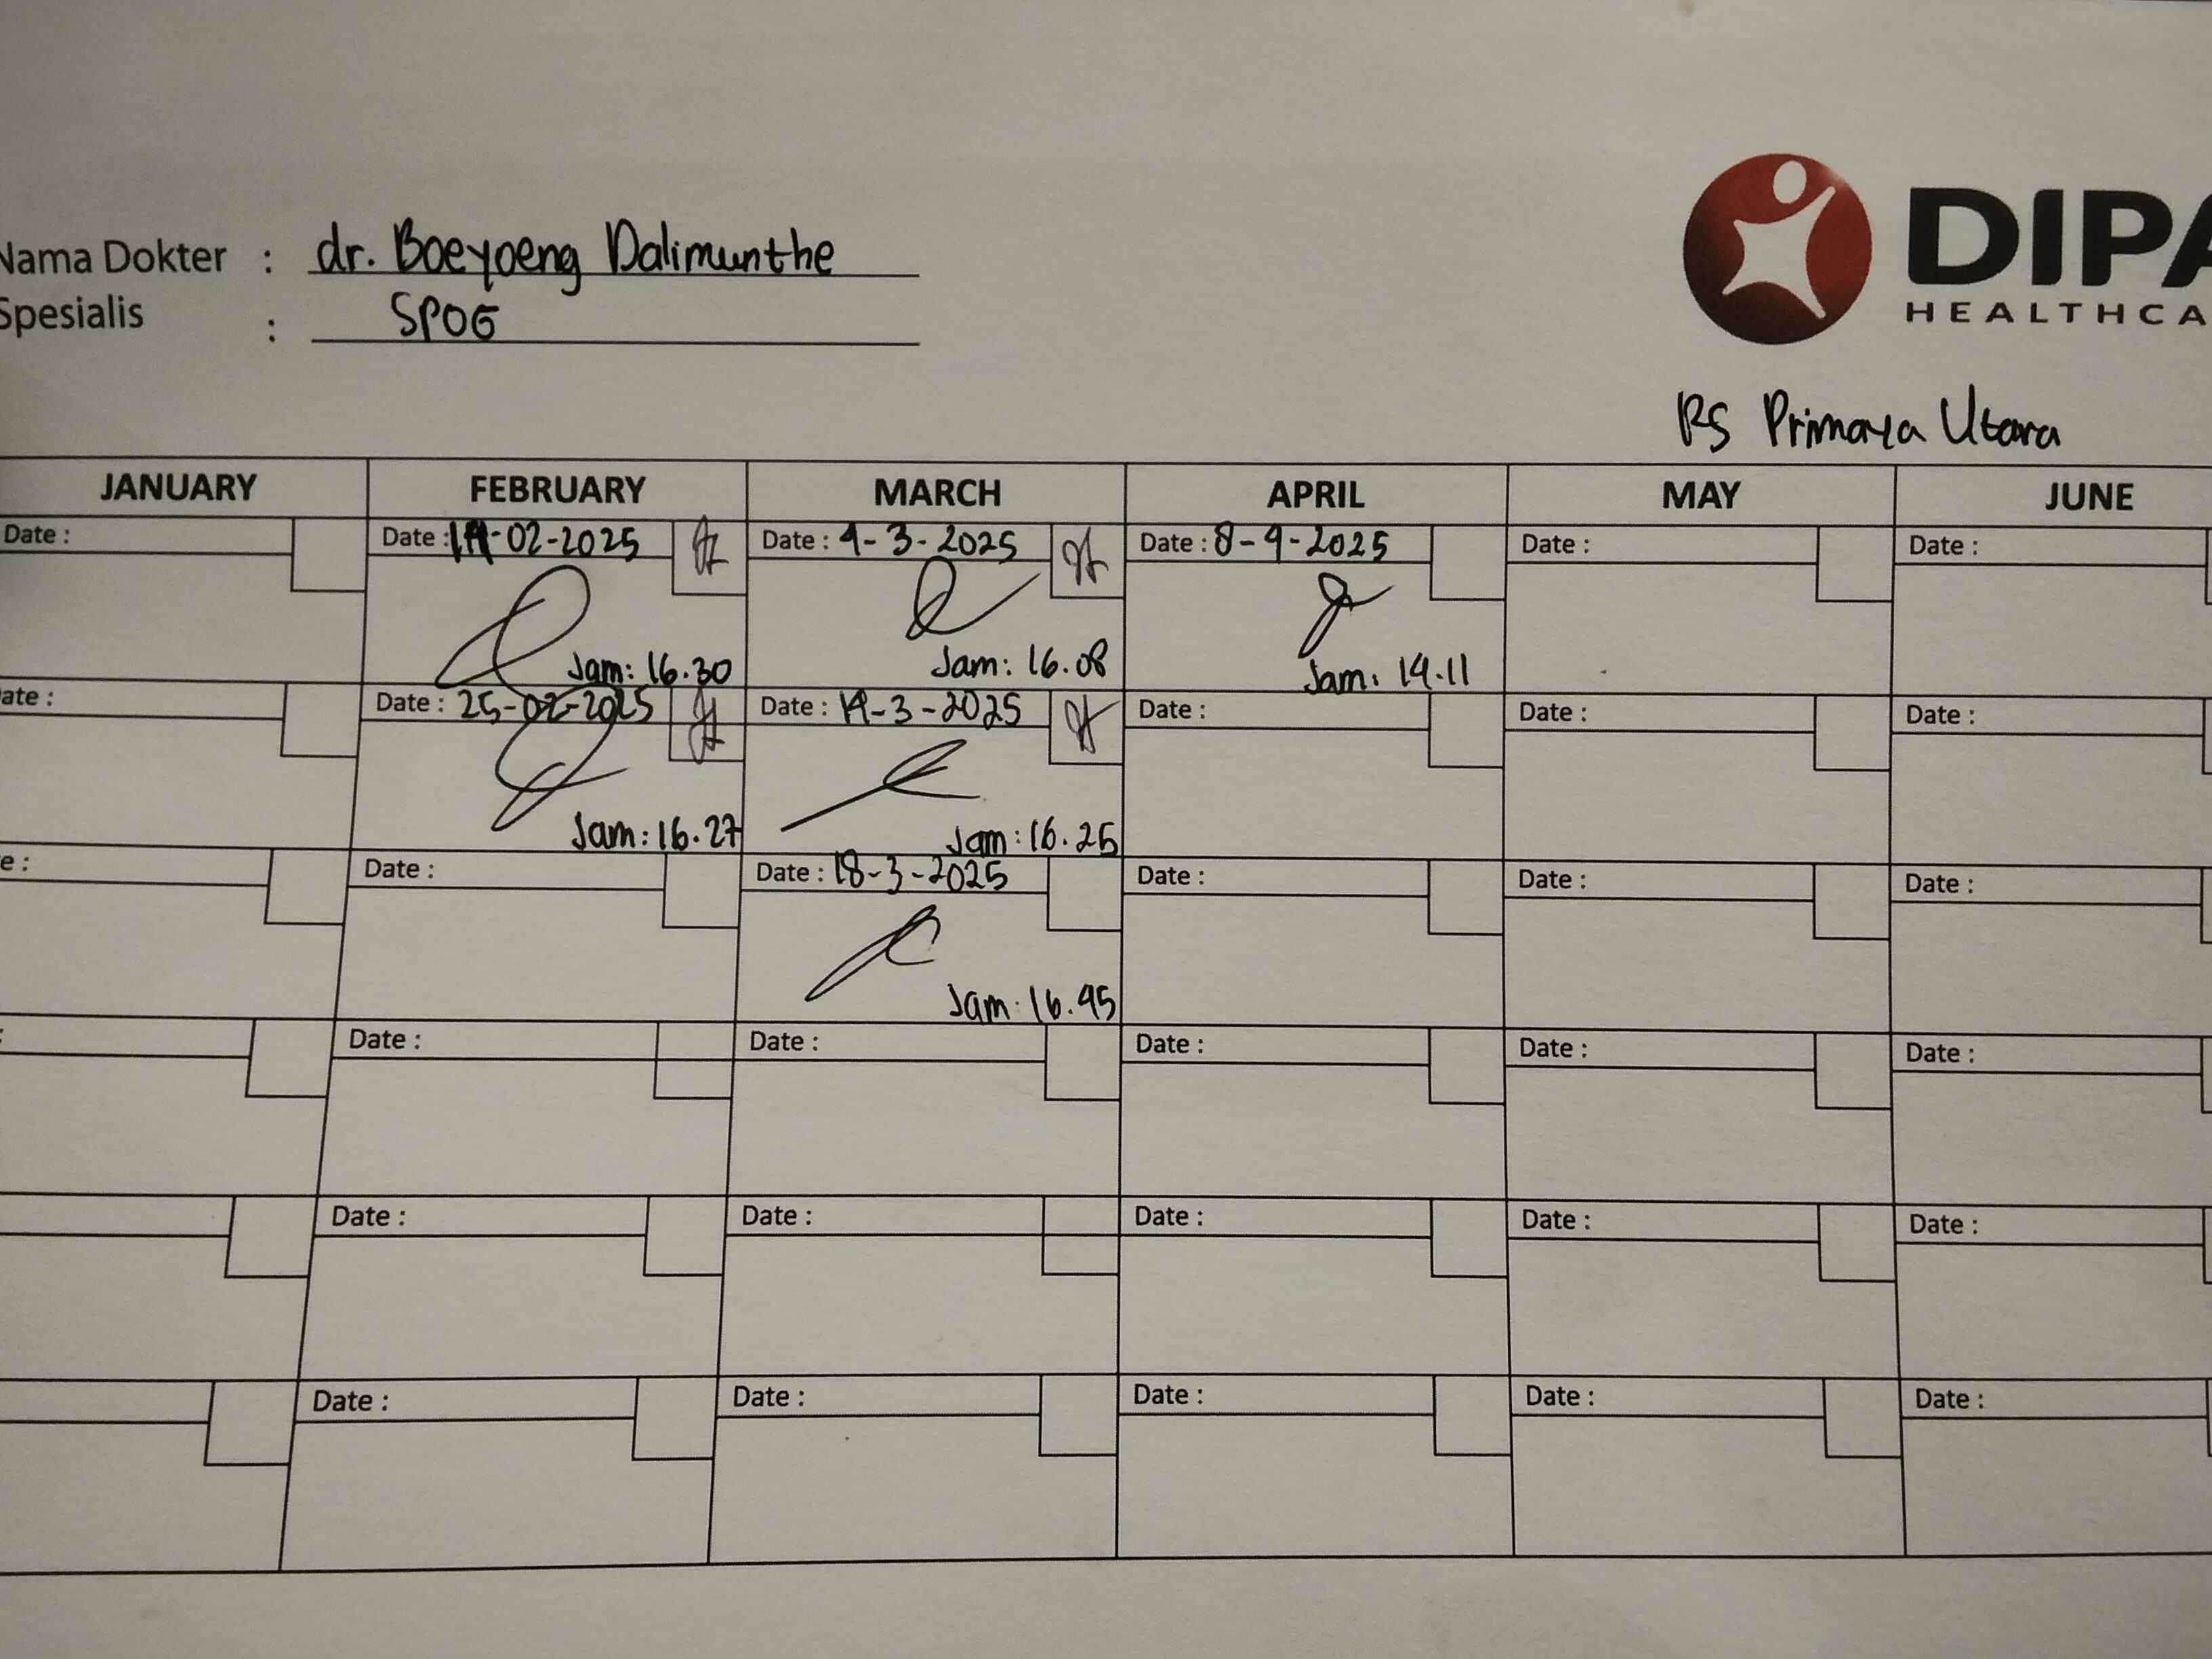 Nama Dokter : dr. Boeyoeng Dalimunthe
Spesialis : SPOG
DIPA
HEALTHCA
RS Primaya Utara
JANUARY FEBRUARY MARCH APRIL MAY JUNE
Date : Date : 14-02-2025 Date : 4-3-2025 Date : 8-4-2025 Date : Date :
Jam: 16.30 Jam: 16.08 Jam: 14.11
ate : Date : 25-02-2025 Date : 14-3-2025 Date : Date : Date :
Jam: 16.27 Jam: 16.25
e : Date : Date : 18-3-2025 Date : Date : Date :
Jam: 16.45
: Date : Date : Date : Date : Date :
Date : Date : Date : Date : Date :
Date : Date : Date : Date : Date :